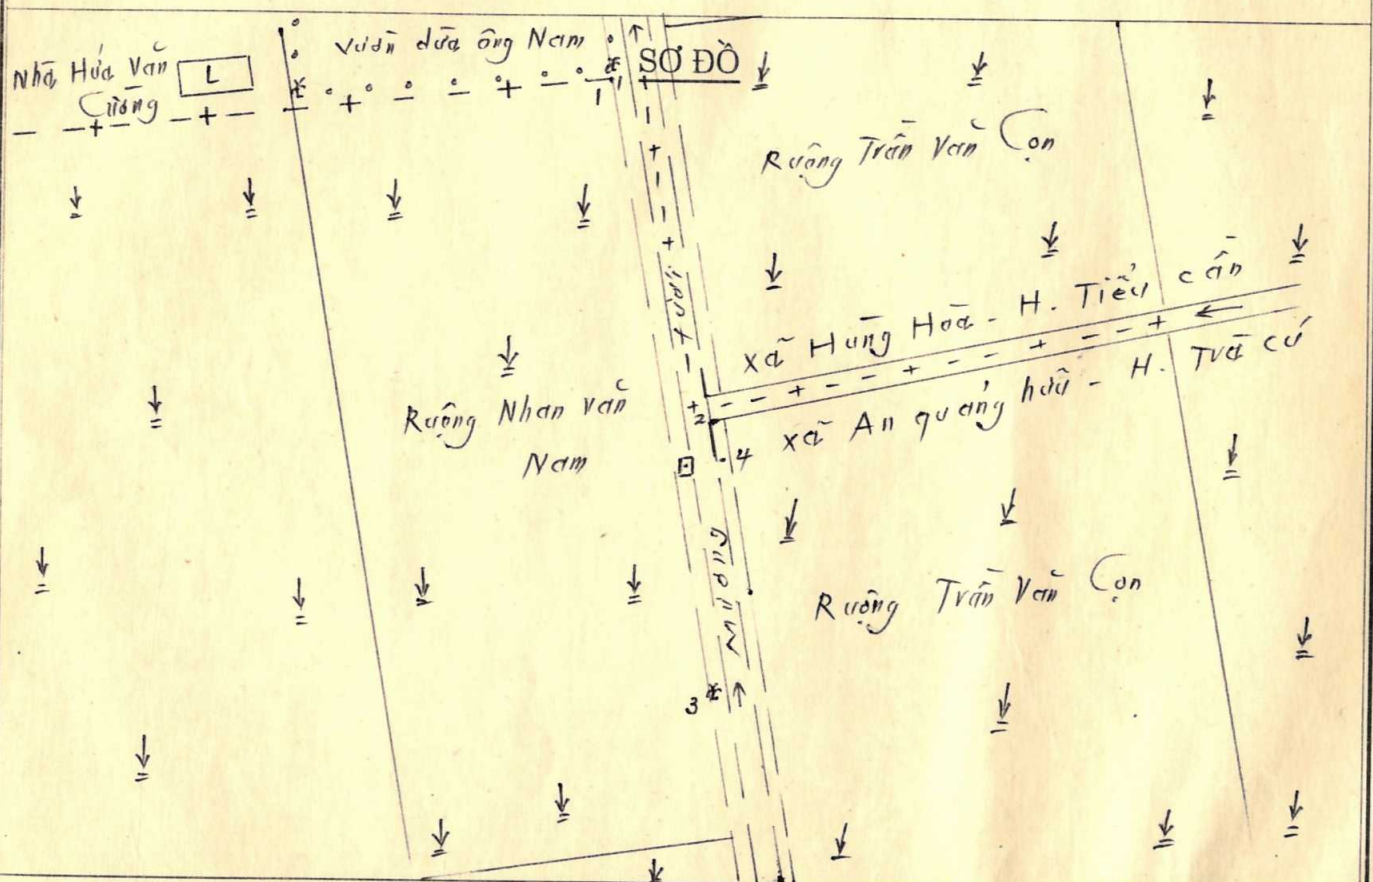 SƠ ĐỒ
Nhà Hứa Văn
Cường
L
Vườn dừa ông Nam
1
Ruộng Trần Văn Cọn
tưới
xã Hùng Hoà - H. Tiểu cần
2
xã An quảng hữu - H. Trà cú
4
Ruộng Nhan Văn
Nam
Mương
Ruộng Trần Văn Cọn
3